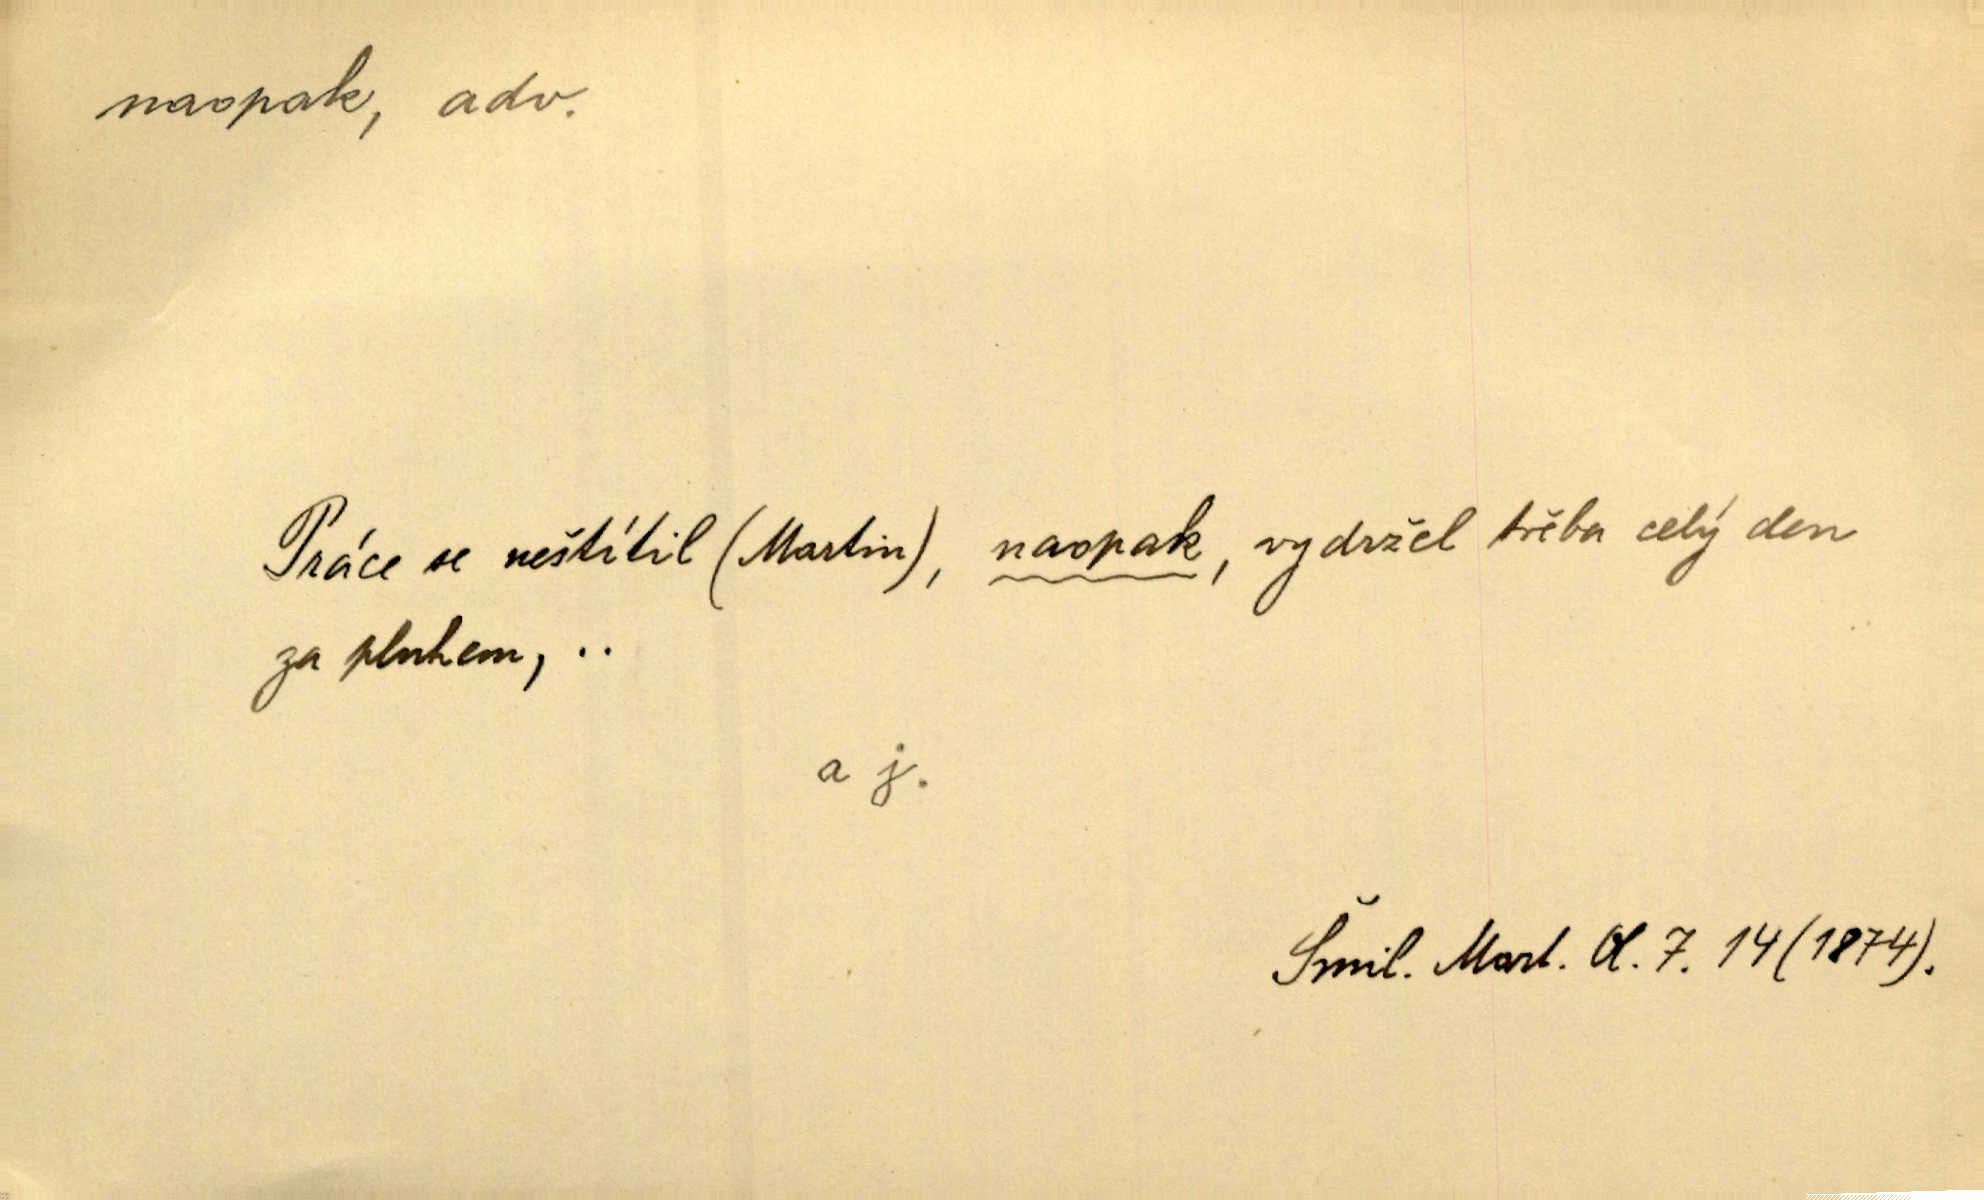 naopak, adv.
Práce se neštítil (Martin), naopak, vydržel třeba celý den
za pluhem, ..
a j.
Šmil. Mart. Ol. 7. 14 (1874).